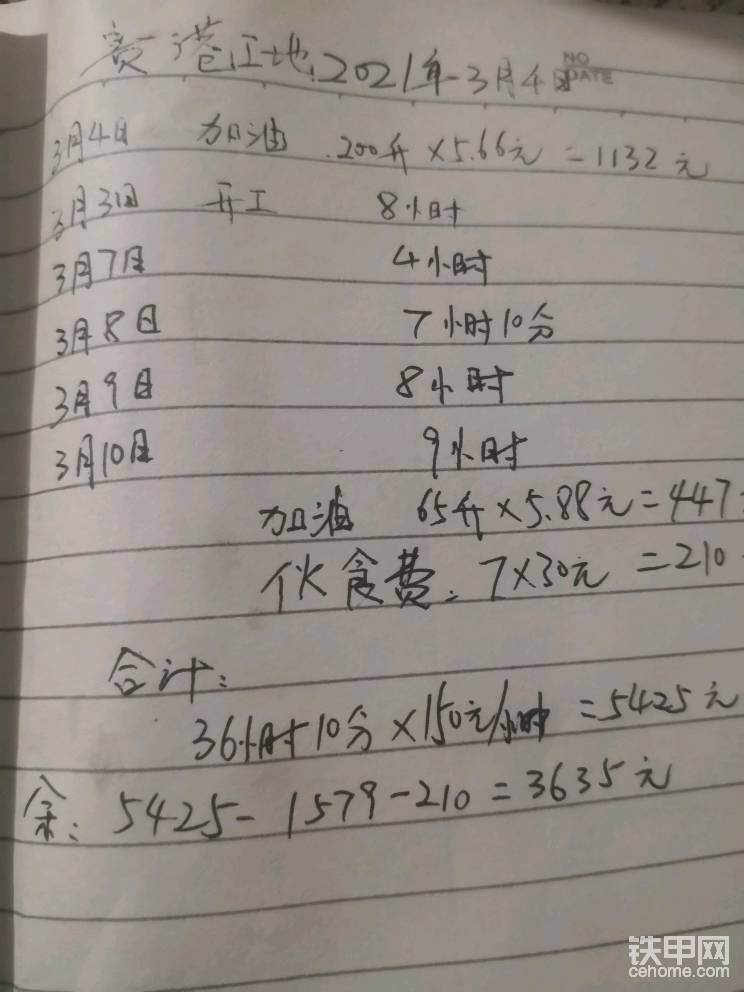 贵港工地.2021年-3月4日
NO
DATE
3月4日 加油 .200升×5.66元=1132元
3月3日 开工 8小时
3月7日 4小时
3月8日 7小时10分
3月9日 8小时
3月10日 9小时
加油 65升×5.88元=447
伙食费: 7×30元=210
合计:
36小时10分×150元/小时=5425元
余: 5425-1579-210=3635元
铁甲网
cehome.com